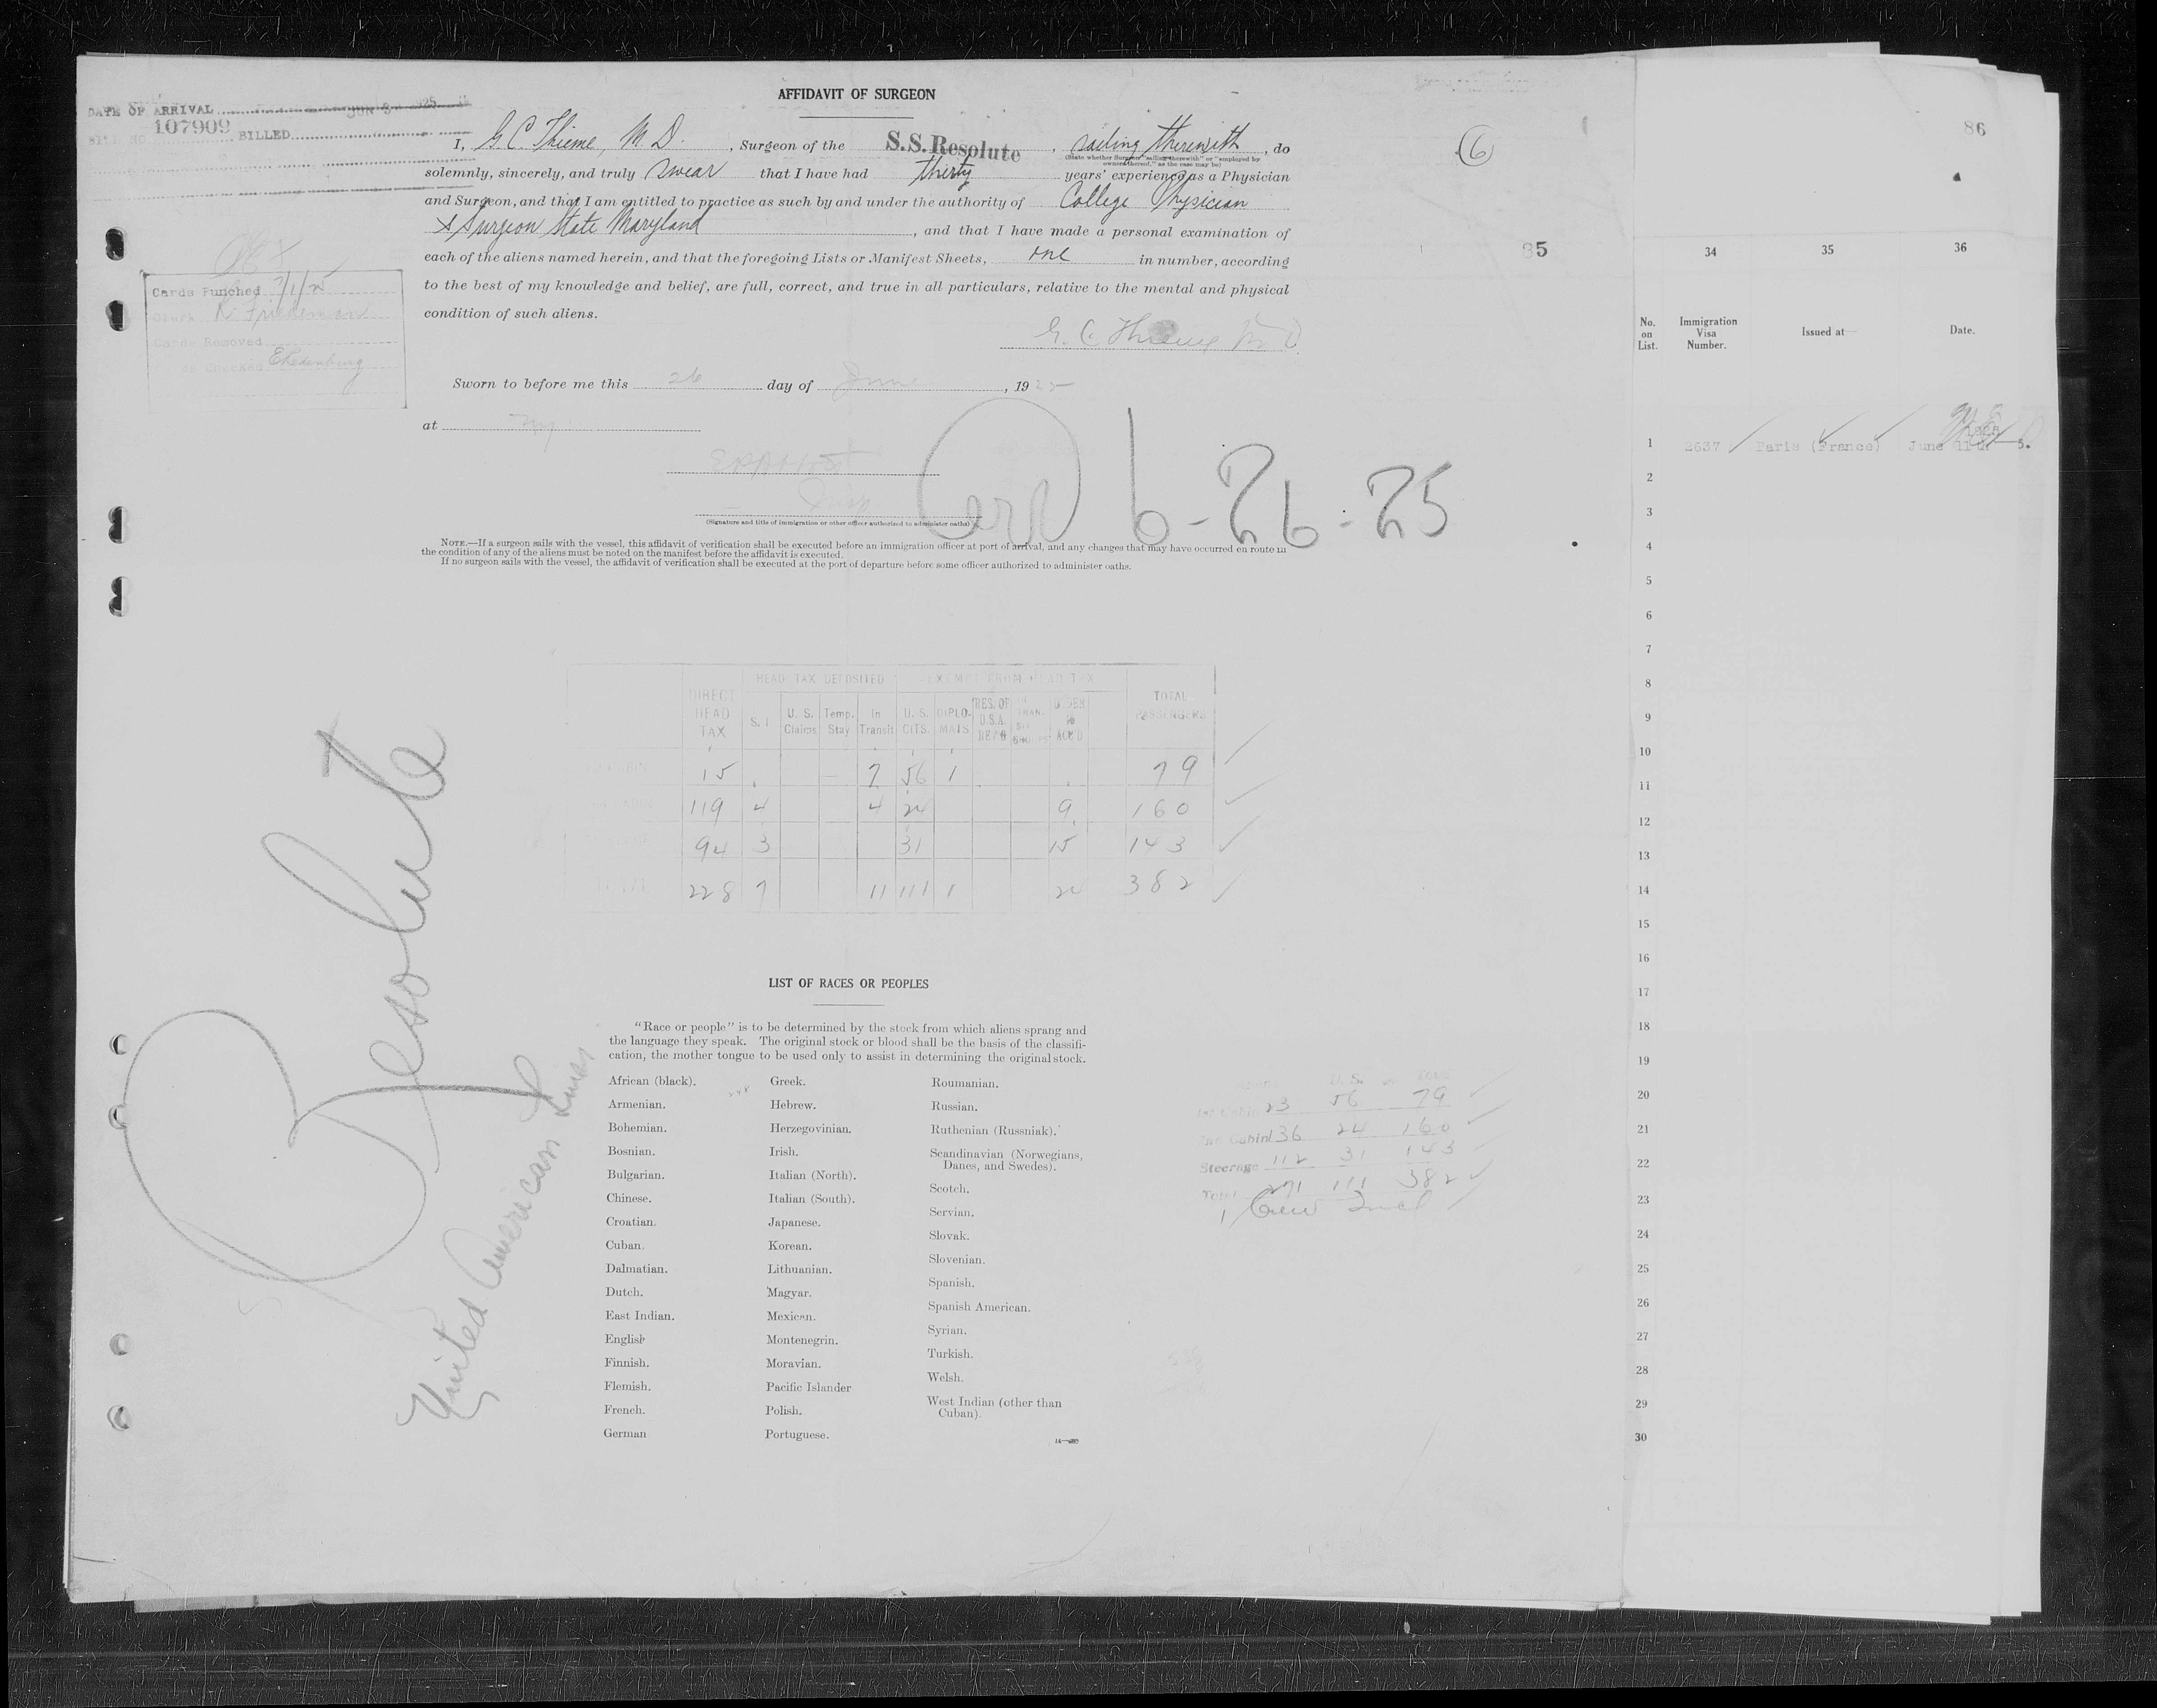 AFFIDAVIT OF SURGEON
DATE OF ARRIVAL
107909 BILLED
I, G. C. Thieme, M. D. , Surgeon of the S.S. Resolute , sailing therewith , do
(State whether Surgeon "sailing therewith" or "employed by owners thereof," as the case may be)
solemnly, sincerely, and truly swear that I have had thirty years' experience as a Physician
and Surgeon, and that I am entitled to practice as such by and under the authority of College Physician
& Surgeon State Maryland , and that I have made a personal examination of
each of the aliens named herein, and that the foregoing Lists or Manifest Sheets, one in number, according
to the best of my knowledge and belief, are full, correct, and true in all particulars, relative to the mental and physical
condition of such aliens.
G. C. Thieme M. D.
Sworn to before me this 26 day of June , 1925
at
(Signature and title of immigration or other officer authorized to administer oaths)
NOTE.—If a surgeon sails with the vessel, this affidavit of verification shall be executed before an immigration officer at port of arrival, and any changes that may have occurred en route in
the condition of any of the aliens must be noted on the manifest before the affidavit is executed.
If no surgeon sails with the vessel, the affidavit of verification shall be executed at the port of departure before some officer authorized to administer oaths.
6
85
Cards Punched 7/1/25
Clerk R. Friedman
Cards Removed
Arr 6-26-25
HEAD TAX DEPOSITED EXEMPT FROM HEAD TAX
DIRECT HEAD TAX S. I. U. S. Claims Temp. Stay In Transit U. S. CITS. DIPLOMATS RES. OF U.S.A. TOTAL PASSENGERS
15 7 56 1 79
119 4 4 24 9 160
94 3 31 15 143
228 7 11 111 1 24 382
Resolute
United American Lines
LIST OF RACES OR PEOPLES
"Race or people" is to be determined by the stock from which aliens sprang and
the language they speak. The original stock or blood shall be the basis of the classifi-
cation, the mother tongue to be used only to assist in determining the original stock.
African (black).
Armenian.
Bohemian.
Bosnian.
Bulgarian.
Chinese.
Croatian.
Cuban.
Dalmatian.
Dutch.
East Indian.
English
Finnish.
Flemish.
French.
German
Greek.
Hebrew.
Herzegovinian.
Irish.
Italian (North).
Italian (South).
Japanese.
Korean.
Lithuanian.
Magyar.
Mexican.
Montenegrin.
Moravian.
Pacific Islander
Polish.
Portuguese.
Roumanian.
Russian.
Ruthenian (Russniak).
Scandinavian (Norwegians,
Danes, and Swedes).
Scotch.
Servian.
Slovak.
Slovenian.
Spanish.
Spanish American.
Syrian.
Turkish.
Welsh.
West Indian (other than
Cuban).
U. S. Total
1st Cabin 23 56 79
2nd Cabin 136 24 160
Steerage 112 31 143
Total 271 111 382
1 Crew Incl
86
34 35 36
No. on List. Immigration Visa Number. Issued at Date.
1 2637 Paris (France) June 11
2
3
4
5
6
7
8
9
10
11
12
13
14
15
16
17
18
19
20
21
22
23
24
25
26
27
28
29
30